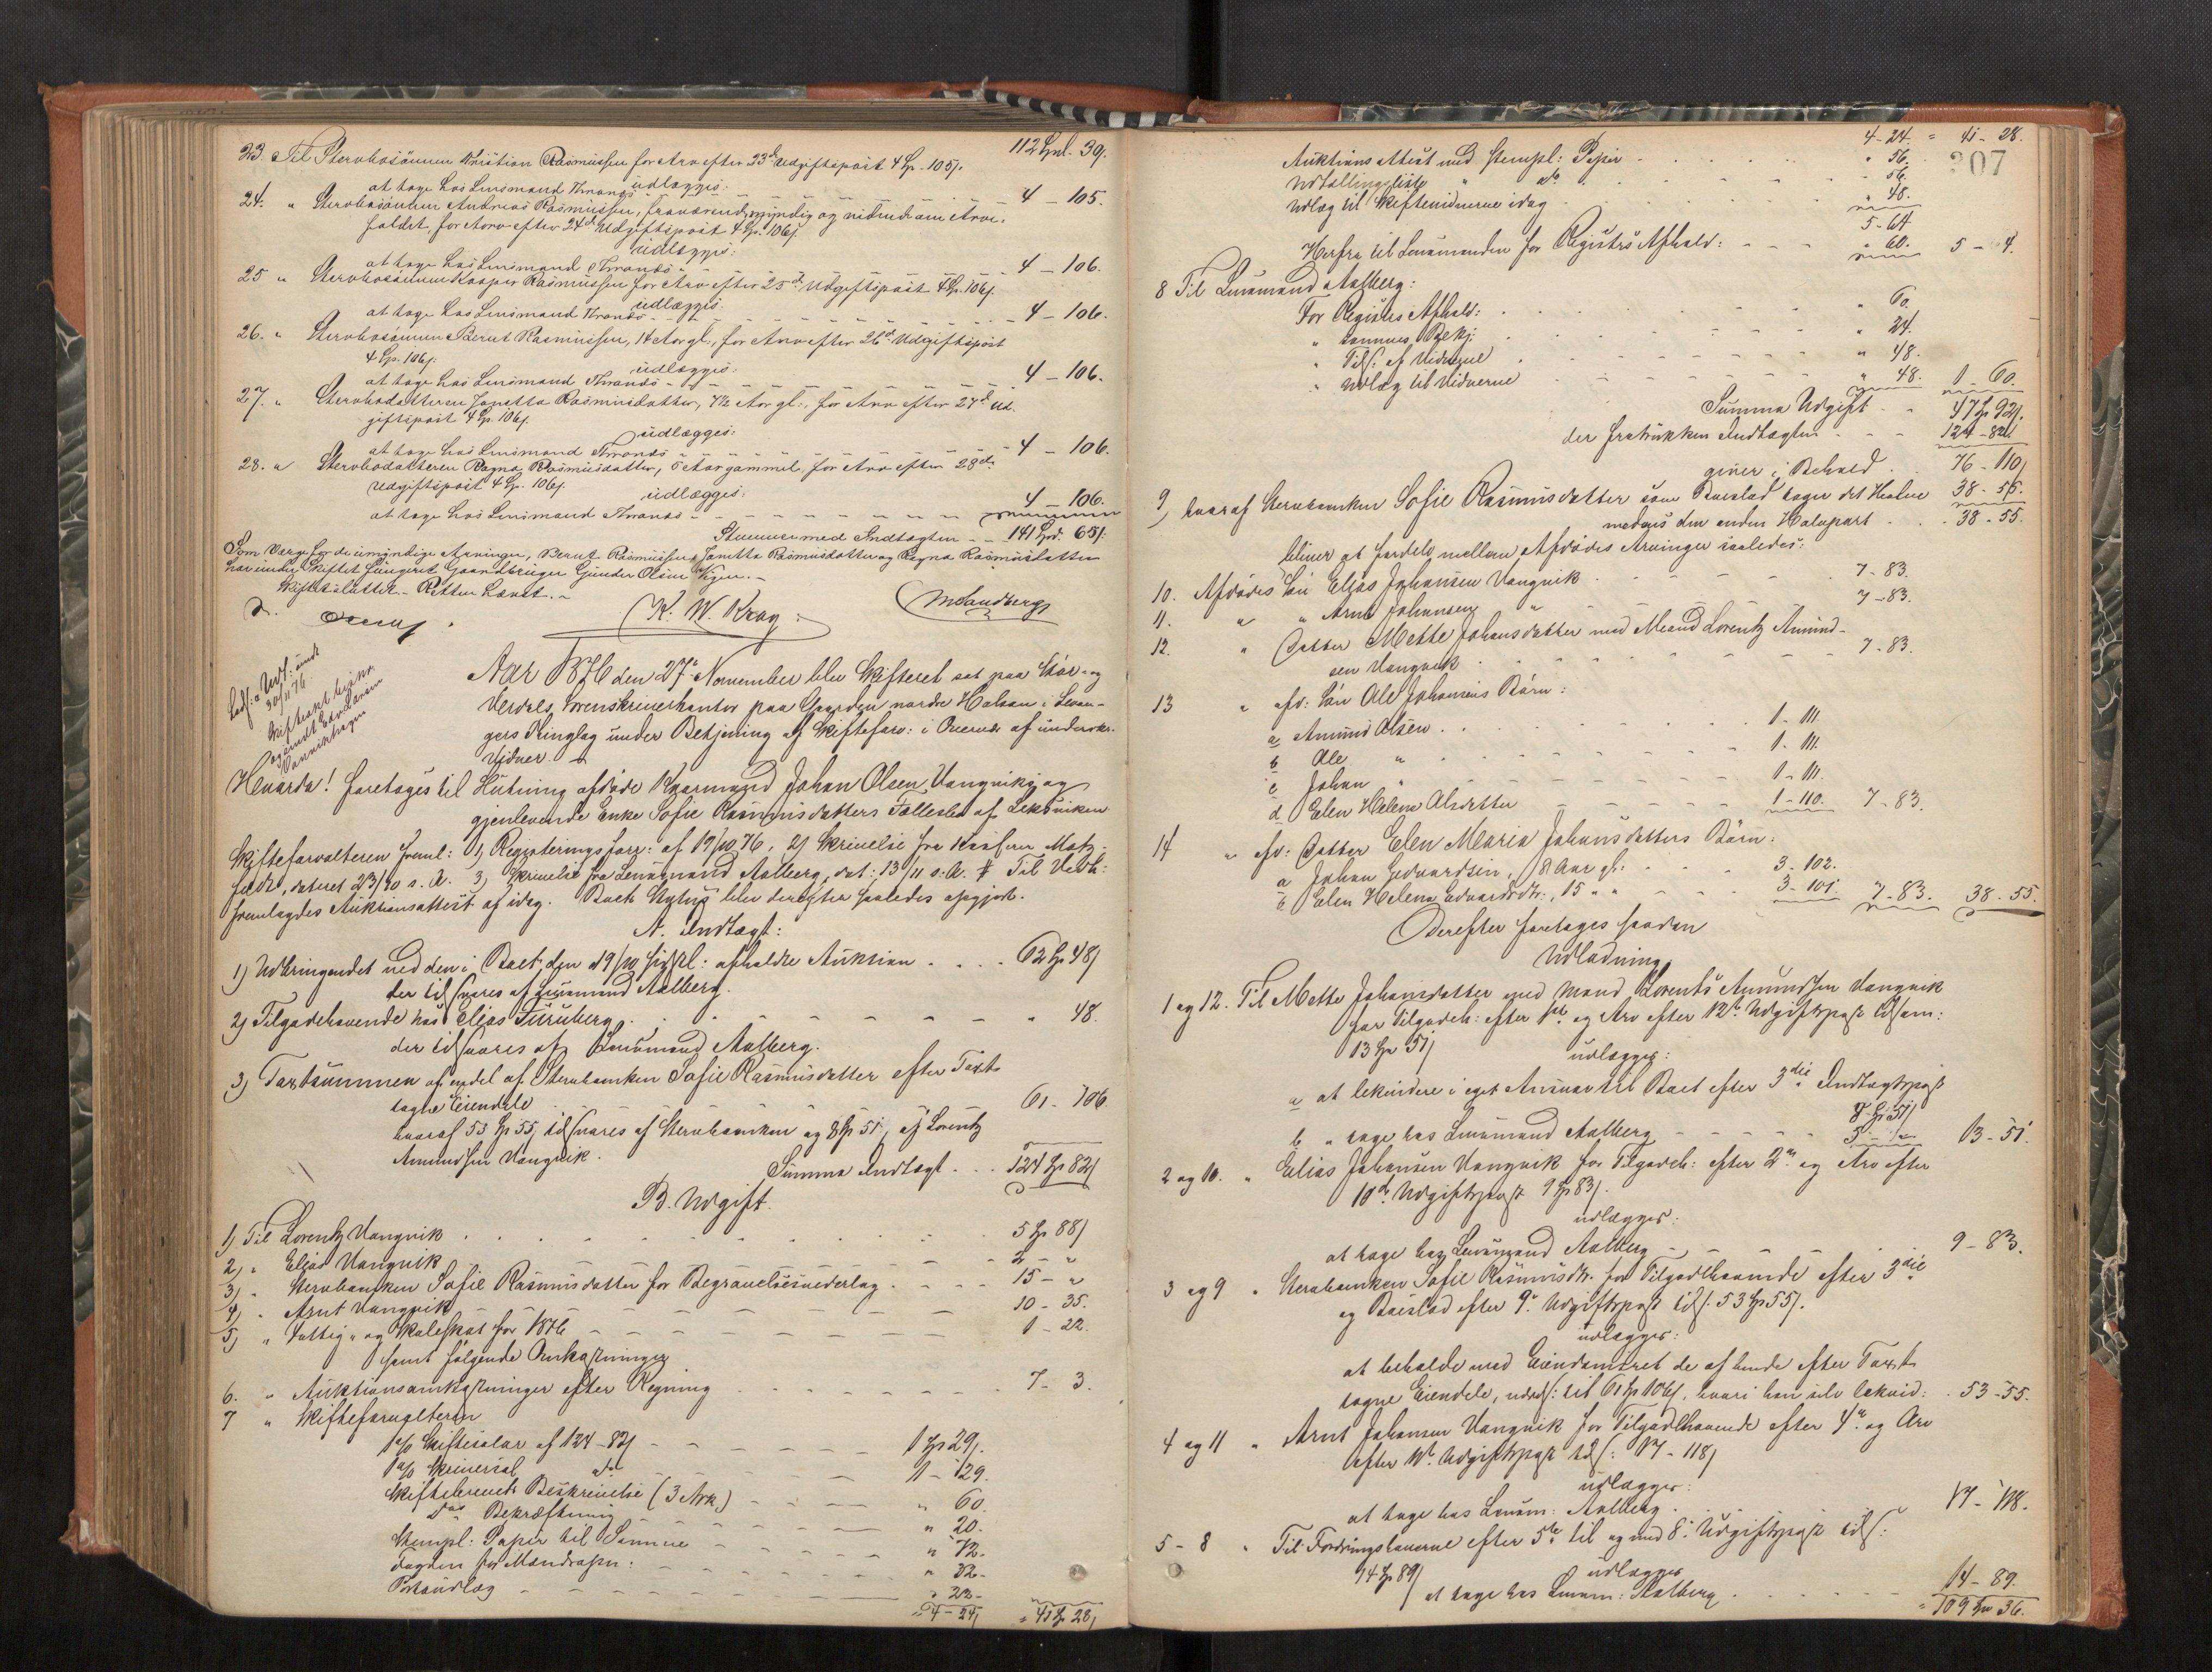 112 Spd. 39 s.
23. Til Sterbosönnen Kristian Rasmussen for Arv efter 23d Udgiftspost 4 Sp. 105 s.
udlægges:
at tage hos Lensmand Arronds - - 4 - 105.
24. " Sterbosönnen Andreas Rasmussen, fraværende, myndig og vidende om Arve-
faldet, for Arv efter 24de Udgiftspost 4 Sp. 106 s.
udlægges:
at tage hos Lensmand - - 4 - 106.
25 " Sterbosönnen Kasper Rasmussen for Arv efter 25de Udgiftspost 4 Sp. 106 s.
udlægges:
at tage hos Lensmand - - 4 - 106.
26. " Sterbosönnen Bernt Rasmussen, 14 Aar gl., for Arv efter 26d Udgiftspost
4 Sp. 106 s.
udlægges:
at tage hos Lensmand - - 4 - 106.
27. " Sterbodatteren Janetta Rasmusdatter, 7½ Aar gl., for Arv efter 27d Ud-
giftspost 4 Sp. 106 s.
udlægges:
at tage hos Lensmand - - 4 - 106.
28. " Sterbodatteren Ragna Rasmusdatter, 5 Aar gammel, for Arv efter 28de
Udgiftspost 4 Sp. 106 s.
udlægges:
at tage hos Lensmand - - 4 - 106.
Stemmer med Indtægten - - 141 Spd. 65 s.
Som Værge for de umyndige Arvinger, Bernt Rasmussen, Janetta Rasmusdatter og Ragna Rasmusdatter
har under Skiftet fungeret Gaardbruger Gunder Olsen Vigen. -
Skiftet sluttet. - Retten hævet. -
K. W. Krog
M Sandberg
Aar 1876 den 27de November blev Skifteret sat paa Stör- og
Verdals Sorenskriverkontor paa Gaarden nordre Halsan i Levan-
gers Thinglag under Betjening af Skifteforv: i Overvær af underskr.
Vidner.
30/11 76.
Hvorda! foretoges til Slutning afdöde Kaarmand Johan Olsen Vangvik og
gjenlevende Enke Sofie Rasmusdatters Fællesbo af Leksviken
Skifteforvalteren freml: 1) Registeringsforr: af 19/10 76, 2) Skrivelse fra
dateret 23/10 s. A. 3) Skrivelse fra Lensmand Aalberg, dat: 13/11 s. A. Til Vedh:
fremlagdes Auktionsattest af idag. Boets blev derefter saaledes opgjort.
A. Indtægt:
1) Udbringendet ved den i Boet den 19/10 afholdte Auktion . . . . 62 Sp. 48 s
der tilsvares af Lensmand Aalberg.
2) Tilgodehavende hos Elias Furuberg . . . " 48.
der tilsvares af Lensmand Aalberg.
3) Taxtsummen af endel af Sterboenken Sofie Rasmusdatter efter Taxt
tagne Eiendele . . . 61 - 106
hvoraf 53 Sp 55 s tilsvares af Sterboenken og 8 Sp 51 s af Lorentz
Amundsen Vangvik.
Summa Indtægt . . . 124 Sp 82 s
B. Udgift.
1) Til Lorentz Vangvik . . . 5 Sp 88 s
2) " Elias Vangvik - - 2 - "
3) " Sterboenken Sofie Rasmusdatter for Begravelsesvederlag . . . 15 - "
4) " Arnt Vangvik - - 10 - 35.
5) " Fattig- og Skoleskat for 1876 - - 1 - 22.
samt følgende Omkostninger
6. " Auktionsomkostninger efter Regning . . . 7 - 3.
7 " Skifteforvalteren
1 % Skiftesalar af 124 - 82 s - - 1 Sp 29 s.
1 % Skriversal do - - 1 - 29.
Skiftebrevets Beskrivelse (3 Ark) - - " 60.
Dets Bekræftning - - " 20.
Stempl: Papir til Samme - - " 72.
Dagden for - - " 32 -
Portoudlæg - - " 22 -
4 - 24 s = 41 Sp 28 s
4 - 24. = 41 - 28.
307
Auktionsattest med stempl: Papir . . . " 56.
Udtællingsliste " do. . . . " 56.
Udlæg til Skiftevidnerne idag . . . " 48.
5 - 64
Herfra til Lensmanden for Registrs Afhold: - - - " 60. 5 - 4.
8 Til Lensmand Aalberg:
For Registrs Afhold: . . . " 60.
" sammes Bekj: . . . " 24.
" Tils: af Vidnerne . . . " 48.
" Udlæg til Vidnerne . . . " 48. 1 - 60.
Summa Udgift . . 47 Sp 92 s.
der fratrukken Indtægten . . . 124 - 82 s
giver i Behold . . 76 - 110 s
9) hvoraf Sterboenken Sofie Rasmusdatter som Boeslod tager det Halve 38 - 55.
medens den anden Halvpart . . . 38 - 55.
bliver at fordele mellem Afdødes Arvinger saaledes:
10. Afdödes Sön Elias Johansen Vangvik . . . 7 - 83.
11. " " Arnt Johansen " . . . 7 - 83.
12. " Datter Mette Johansdatter med Mand Lorentz Amund-
sen Vangvik . . . 7 - 83.
13 " afd: Sön Ole Johansens Börn:
a Amund Olsen . . . 1 - 111.
b Ole " . . . 1 - 111.
c Johan " . . . 1 - 111.
d Elen Helena Olsdatter - - 1 - 110. 7 - 83.
14 " afd: Datter Elen Maria Johansdatters Börn:
a Johan Edvardsen, 18 Aar gl: . . . 3 - 102.
b Elen Helena Edvardsdtr:, 15 " " - - 3 - 101. 7 - 83. 38 - 55.
Derefter foretoges saadan
Udlodning.
1 og 12. Til Mette Johansdatter med Mand Lorents Amundsen Vangvik
for Tilgodeh: efter 1ste og Arv efter 12te Udgiftspost tilsam:
13 Sp 51 s udlægges:
a at likvidere i eget Ansvar til Boet efter 3die Indtægtspost
8 Sp 51 s
b " tage hos Lensmand Aalberg - - 5 - " 13 - 51.
2 og 10. " Elias Johansen Vangvik for Tilgodeh: efter 2den og Arv efter
10de Udgiftspost 9 Sp 83 s.
udlægges:
at tage hos Lensmand Aalberg - - 9 - 83.
3 og 9 " Sterboenken Sofie Rasmusdtr. for Tilgodehavende efter 3die
og Boeslod efter 9de Udgiftspost tils. 53 Sp 55 s.
udlægges:
at beholde med Eiendomsret de af hende efter Taxt
tagne Eiendele, til 61 Sp 106 s, hvori hun selv likvid: . 53 - 55.
4 og 11 " Arnt Johansen Vangvik for Tilgodehavende efter 4de og Arv
efter 11te Udgiftspost tils: 17 - 118 s
udlægges:
at tage hos Lensm: Aalberg . . . 17 - 118.
5 - 8 " Til Fordringshaverne efter 5te til og med 8de Udgiftspost tils:
14 Sp 89 s udlægges
at tage hos Lensm: Aalberg . . . 14 - 89.
= 109 Sp 36.